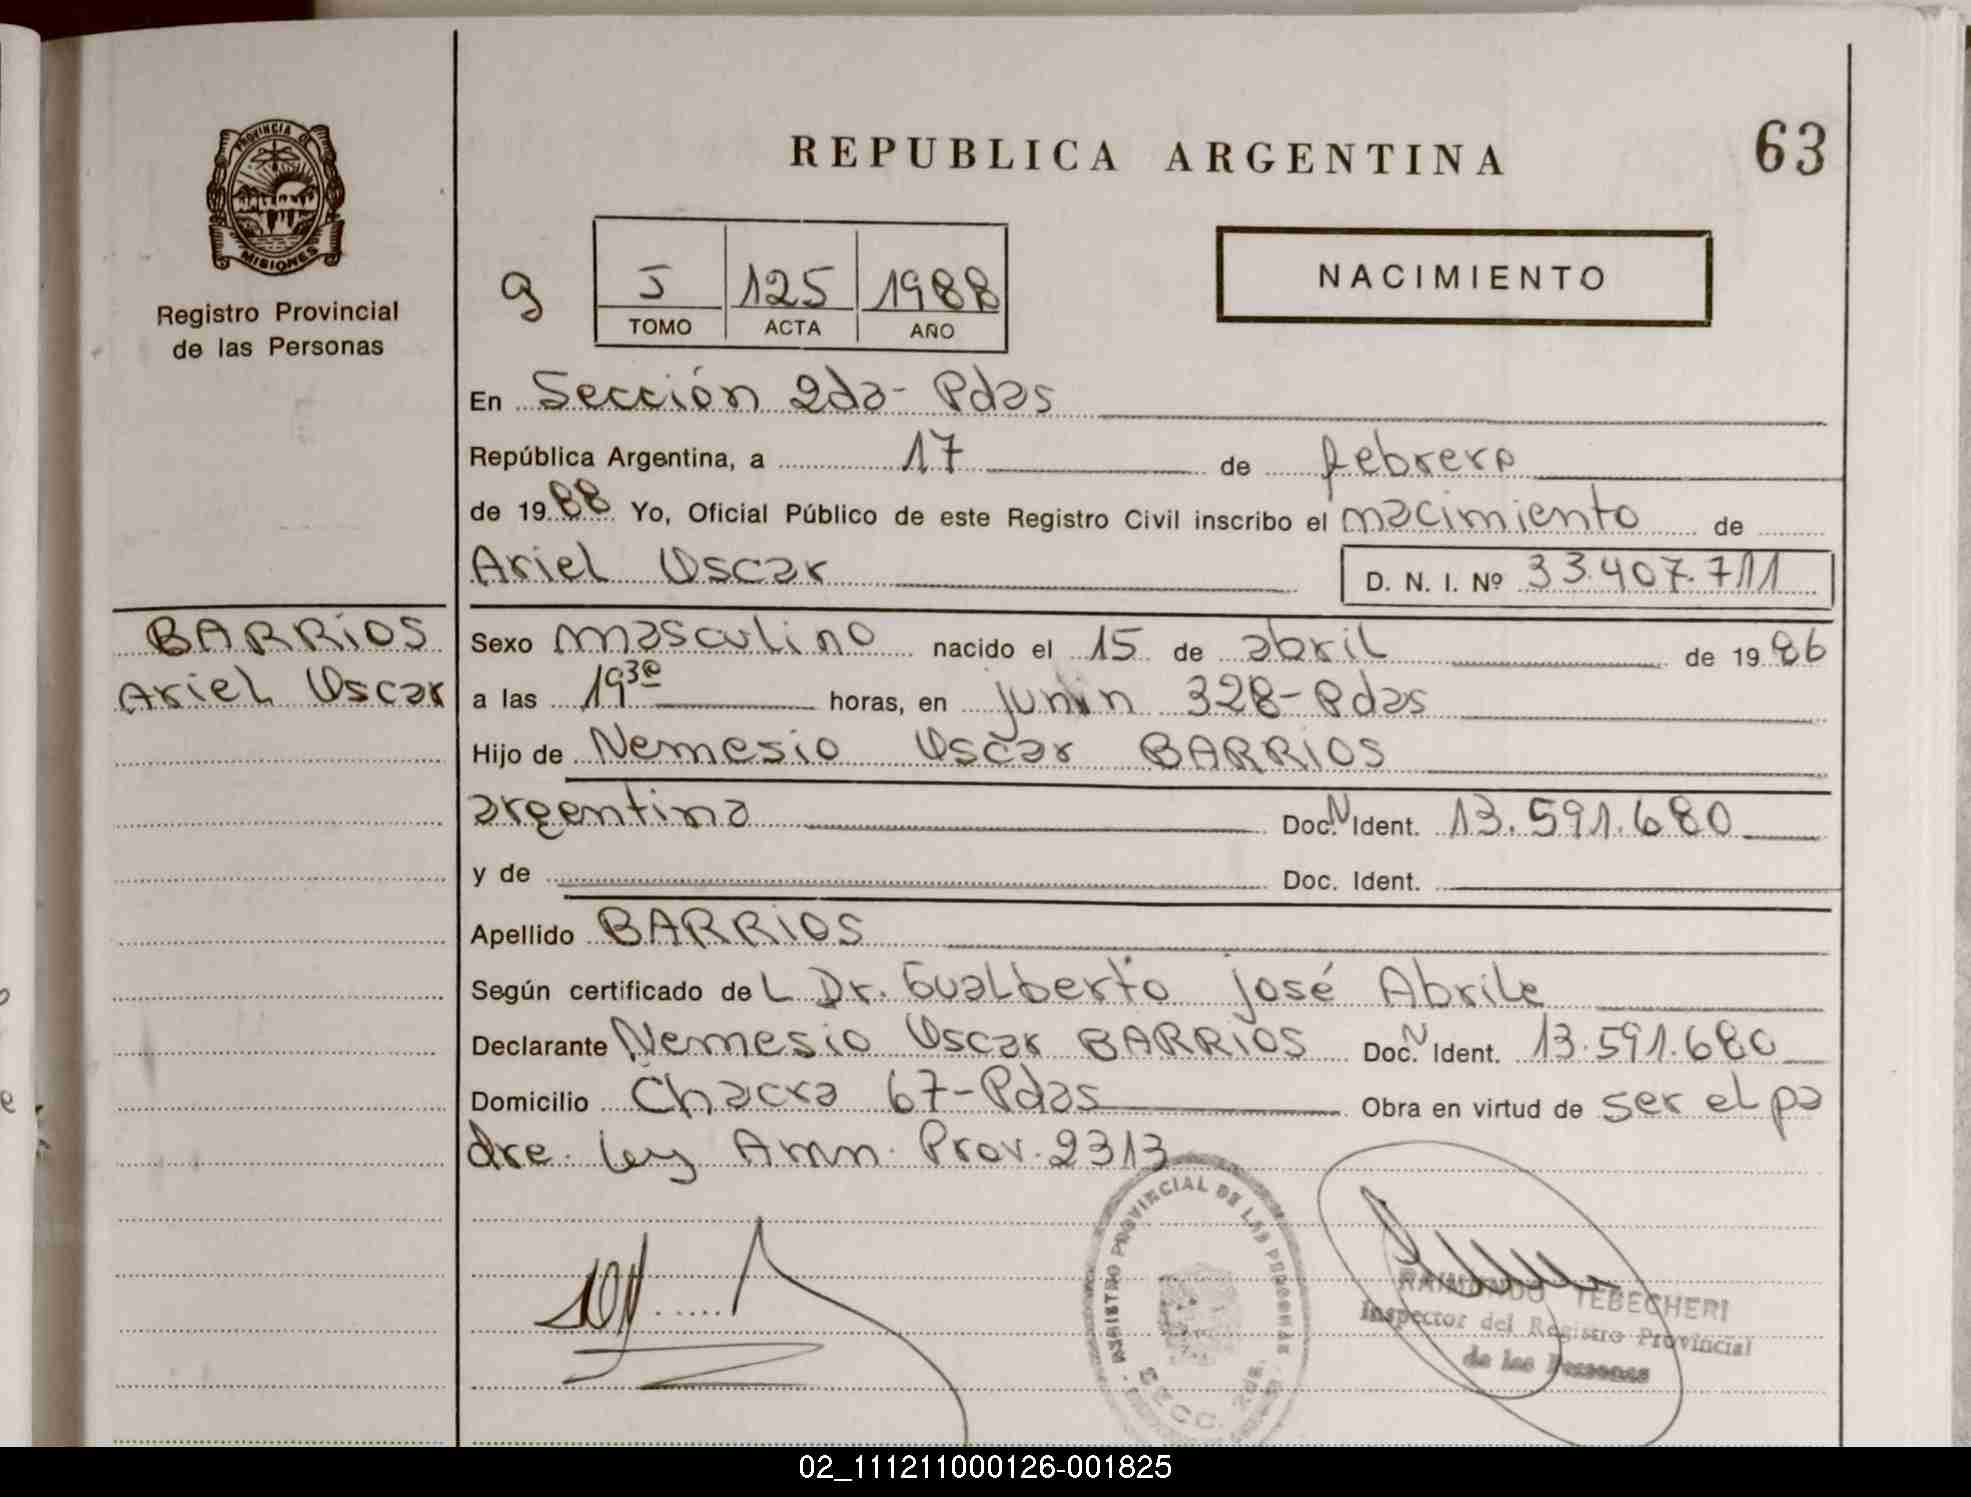 PROVINCIA DE
MISIONES
Registro Provincial
de las Personas
REPUBLICA ARGENTINA
63
9
5 125 1988
TOMO ACTA AÑO
NACIMIENTO
En Sección 2da- Pdas
República Argentina, a 17 de febrero
de 1988 Yo, Oficial Público de este Registro Civil inscribo el nacimiento de
Ariel Oscar D. N. I. Nº 33.407.711
BARRIOS
Ariel Oscar
Sexo masculino nacido el 15 de abril de 1986
a las 19 30 horas, en junin 328-Pdas
Hijo de Nemesio Oscar BARRIOS
argentina Doc. N Ident. 13.591.680
y de Doc. Ident.
Apellido BARRIOS
Según certificado de L Dr. Gualberto José Abrile
Declarante Nemesio Oscar BARRIOS Doc. N Ident. 13.591.680
Domicilio Chacra 67-Pdas Obra en virtud de ser el pa
dre. Ley Amn. Prov. 2313
REGISTRO PROVINCIAL DE LAS PERSONAS
SECC. 2da.
RAIMUNDO TEBECHERI
Inspector del Registro Provincial
de las Personas
02_111211000126-001825